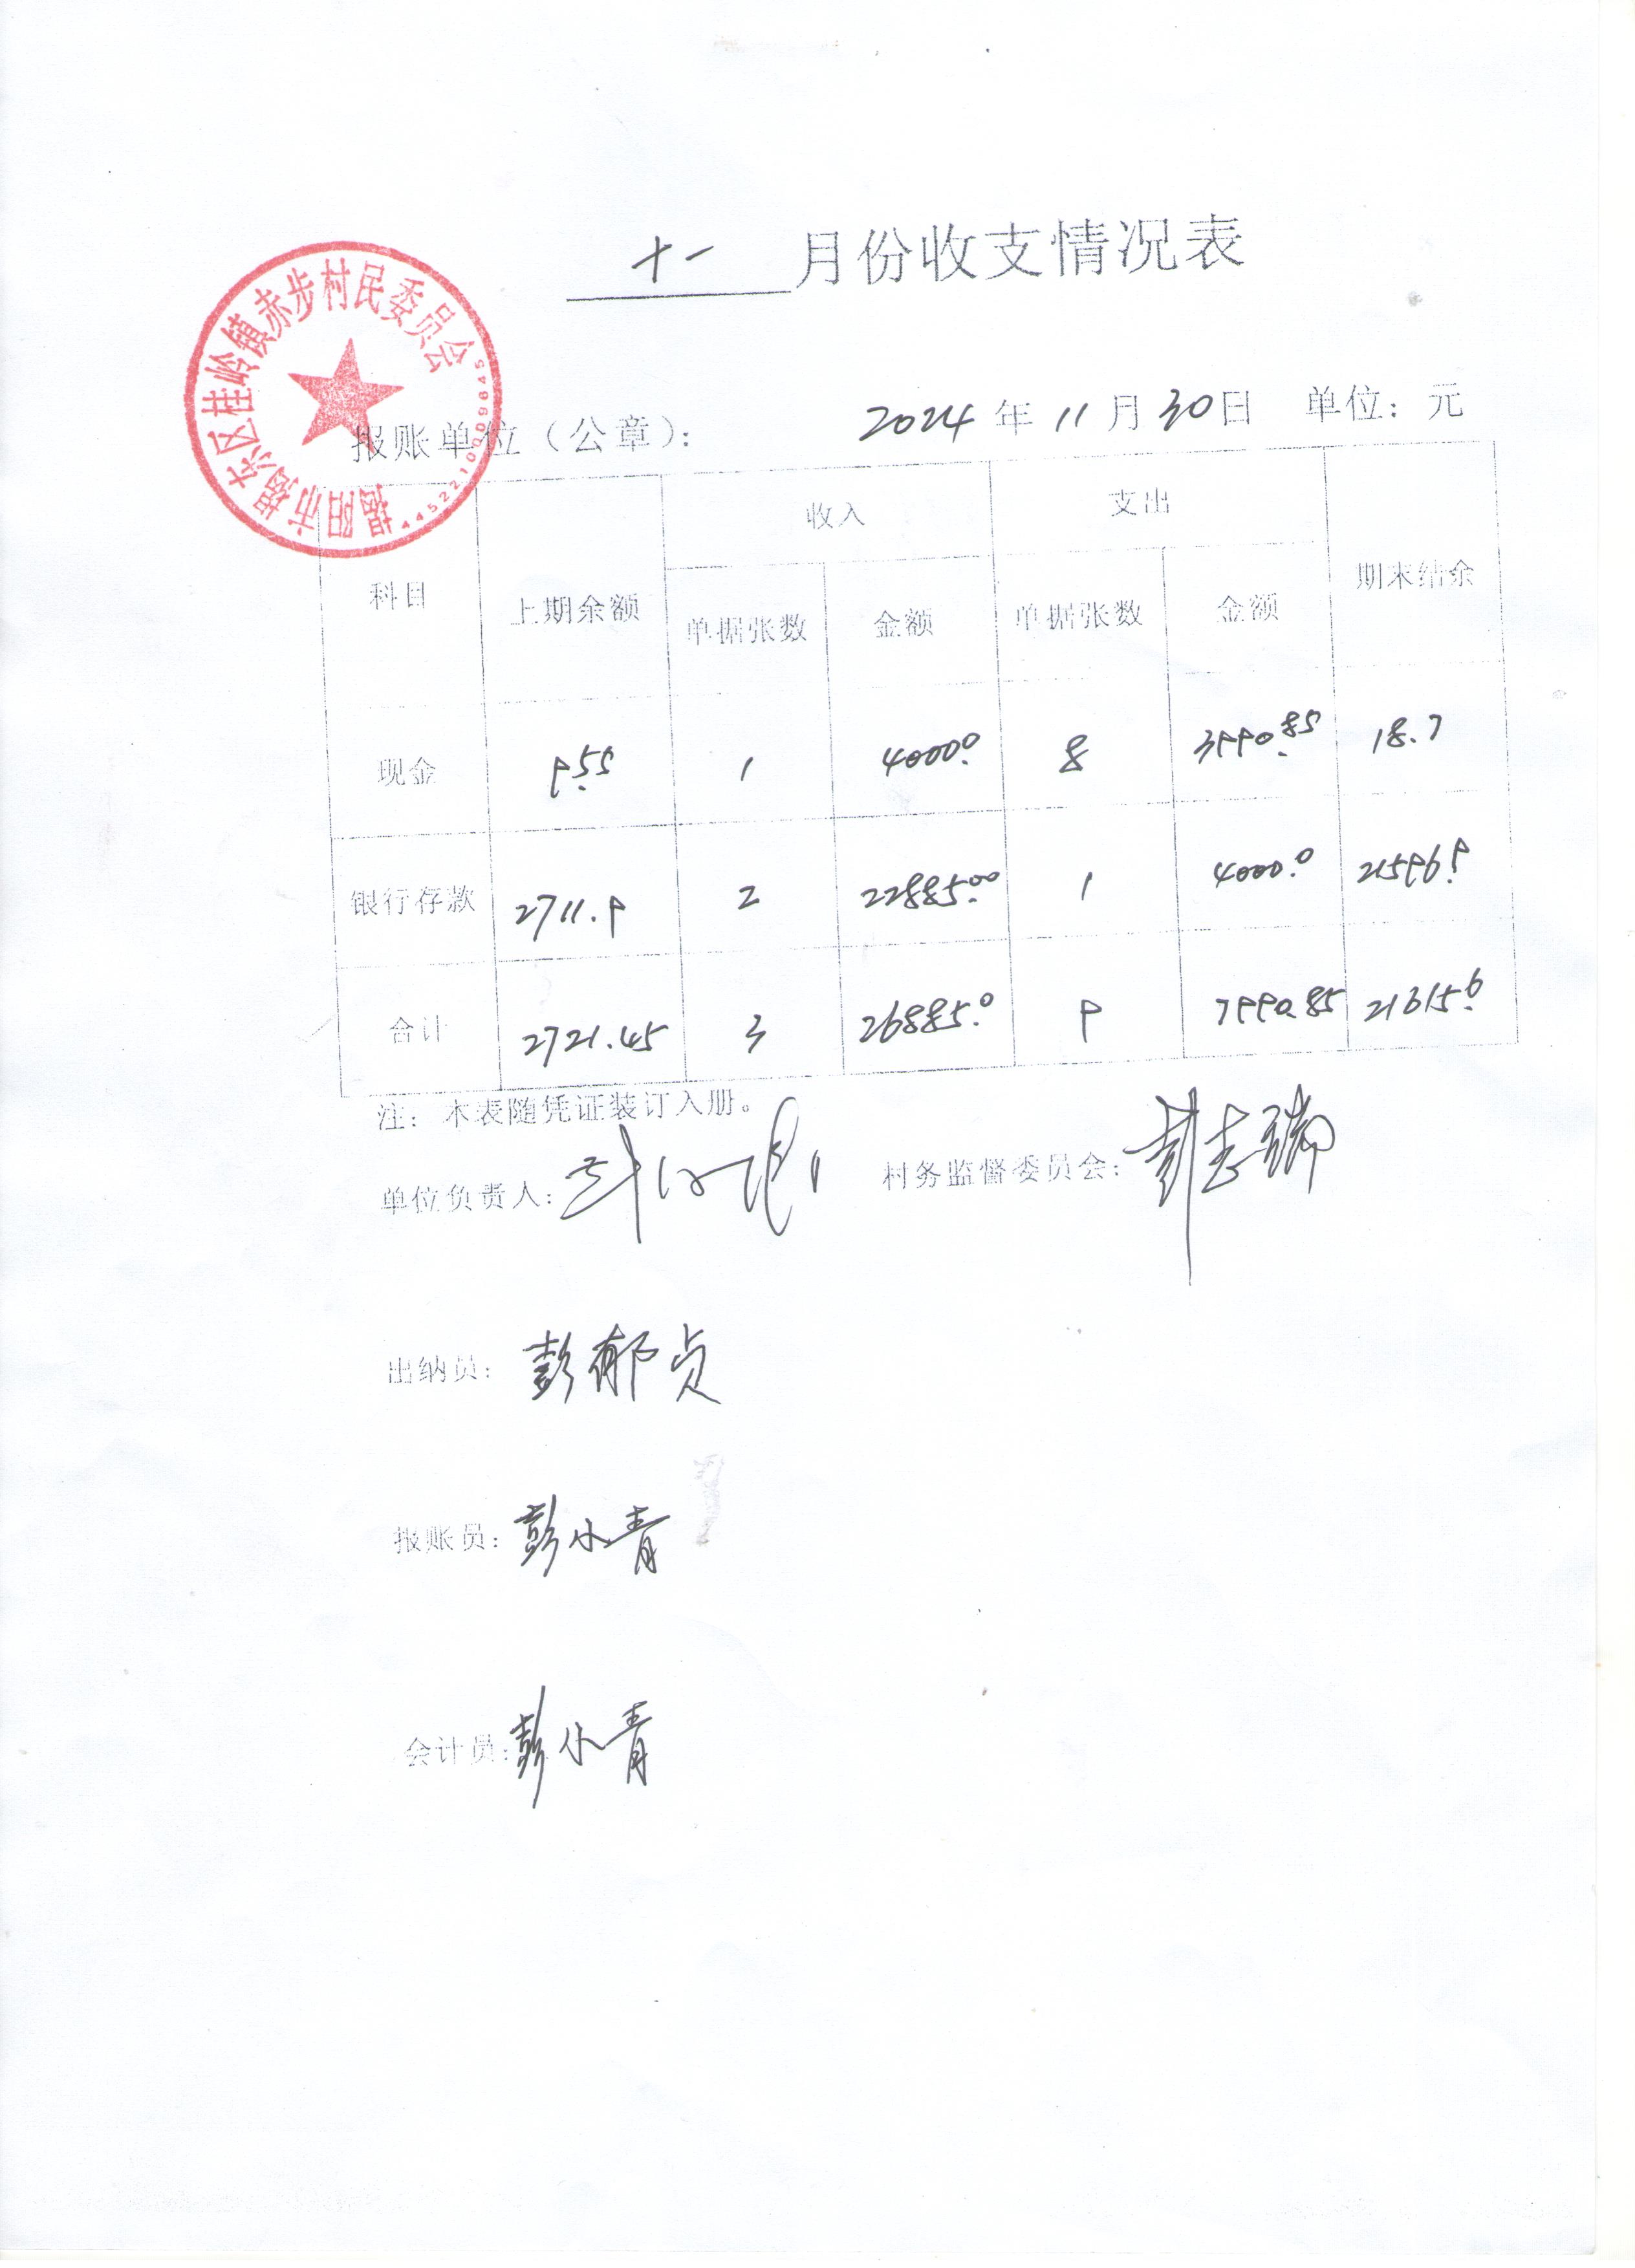 十一 月份收支情况表
揭阳市揭东区桂岭镇赤步村民委员会
4452210009645
报账单位（公章）： 2024 年 11 月 30 日 单位：元
科目 上期余额 收入 支出 期末结余
单据张数 金额 单据张数 金额
现金 9.55 1 4000.0 8 3990.85 18.7
银行存款 2711.9 2 22885.00 1 4000.0 21596.9
合计 2721.45 3 26885.0 9 7990.85 21615.6
注：本表随凭证装订入册。
单位负责人： 村务监督委员会：彭志瑞
出纳员：彭郁贞
报账员：彭小青
会计员：彭小青